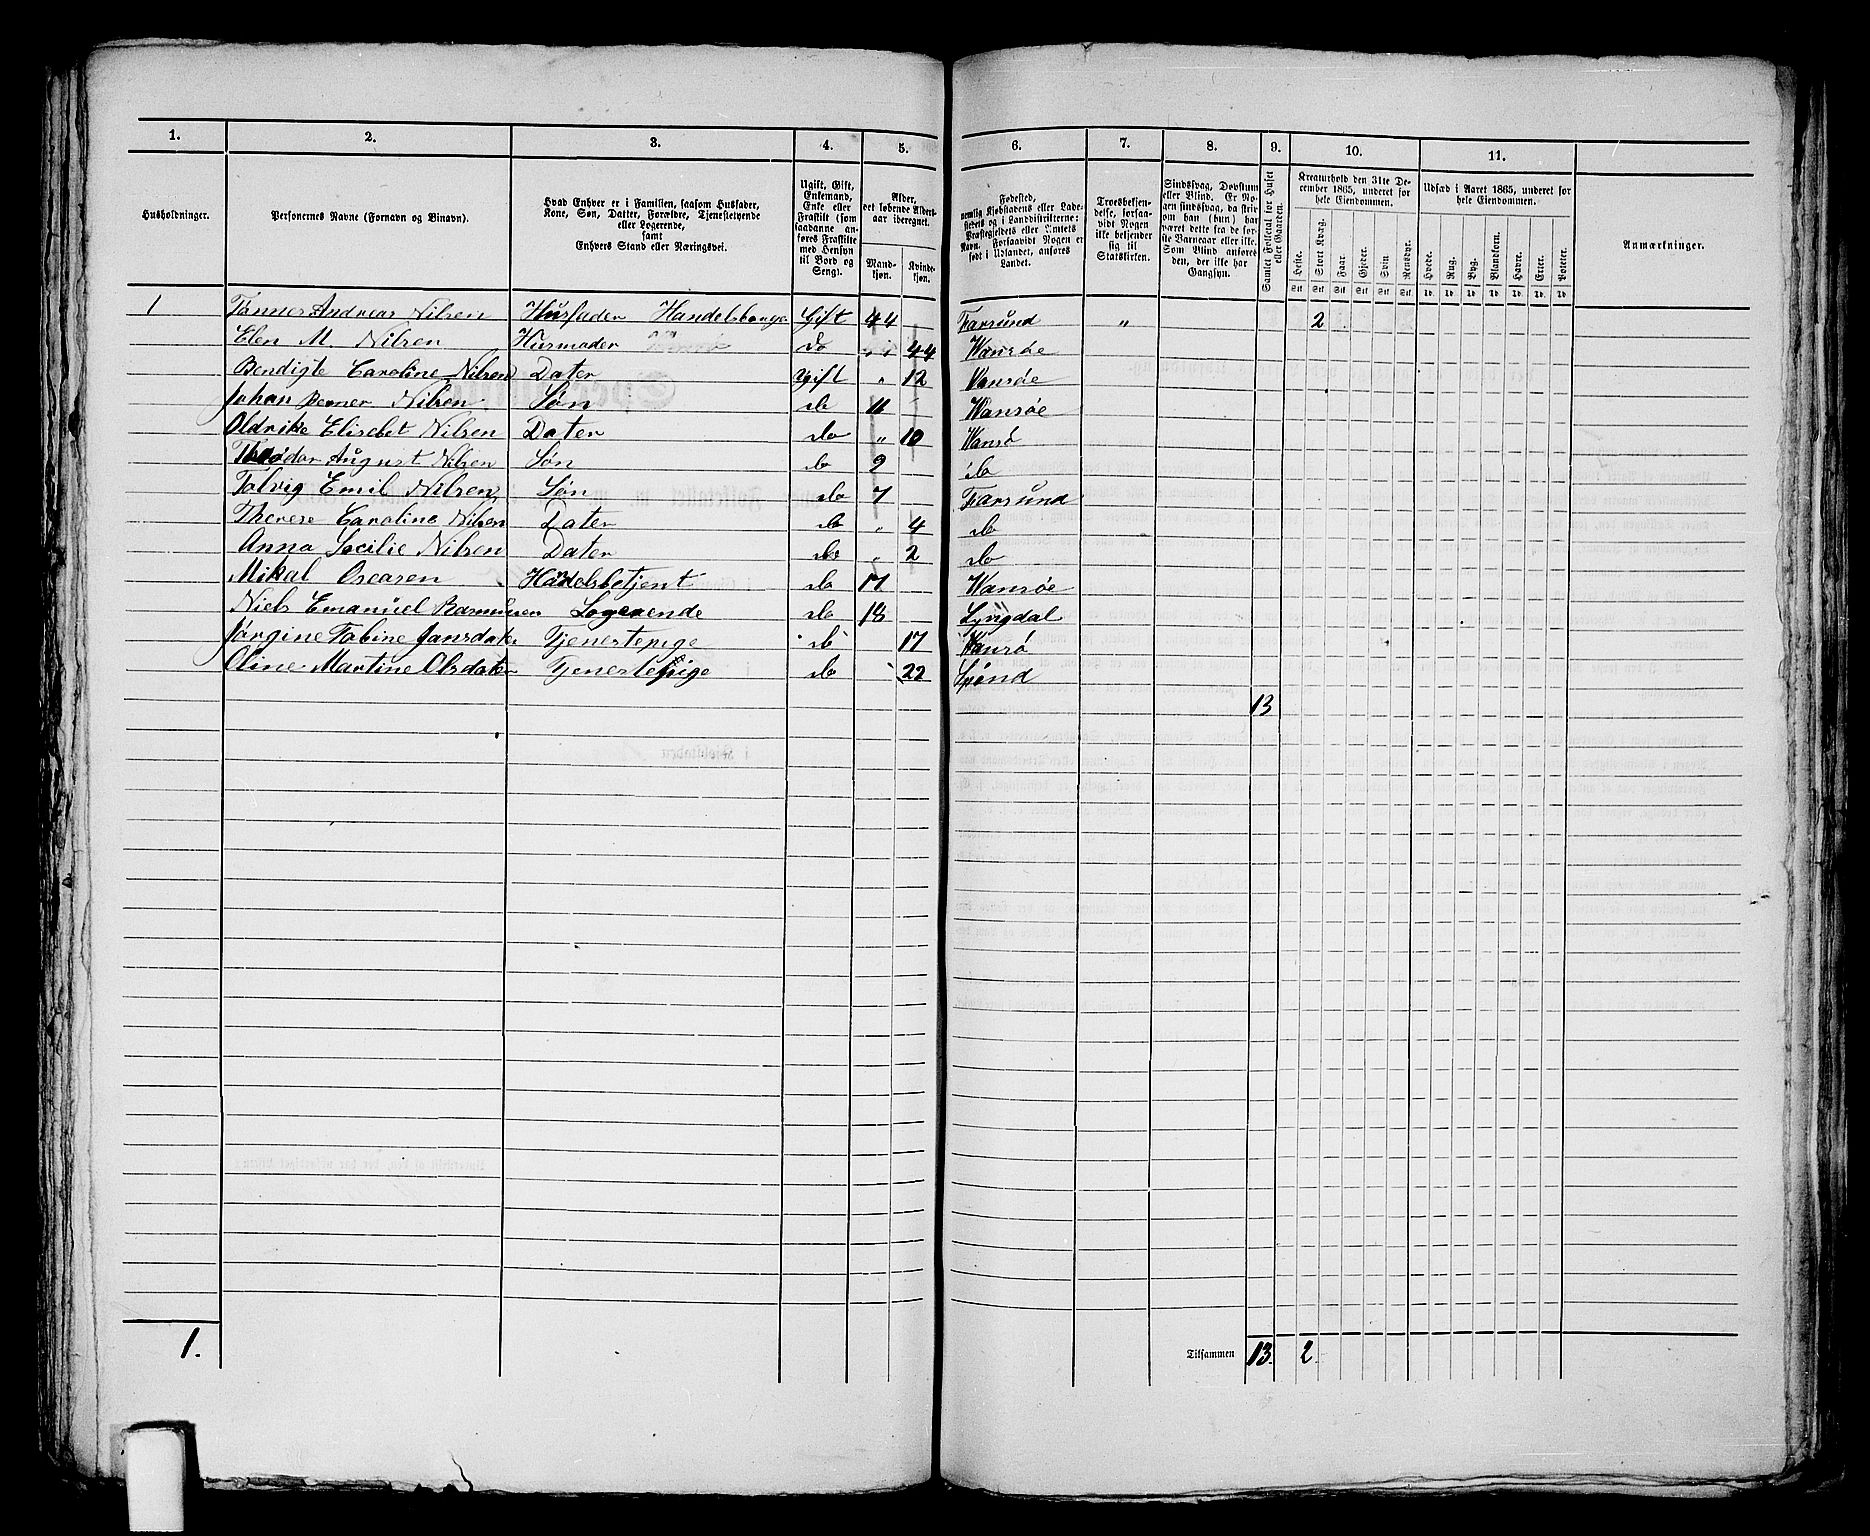 1. 2. 3. 4. 5. 6. 7. 8. 9. 10. 11.
Husholdninger.
Personernes Navne (Fornavn og Binavn).
Hvad Enhver er i Familien, saasom Husfader,
Kone, Søn, Datter, Forældre, Tjenestetyende
eller Logerende,
samt
Enhvers Stand eller Næringsvei.
Ugift, Gift,
Enkemand,
Enke eller
Fraskilt (som
saadanne an-
føres Fraskilte
med Hensyn
til Bord og
Seng).
Alder,
det løbende Alders-
aar iberegnet.
Mand-
kjøn.
Kvinde-
kjøn.
Fødested,
nemlig Kjøbstadens eller Lade-
stedets og i Landdistrikterne:
Præstegjeldets eller Amtets
Navn. Forsaavidt Nogen er
født i Udlandet, anføres
Landet.
Troesbekjen-
delse, forsaa-
vidt Nogen
ikke bekjender
sig til
Statskirken.
Sindssvag, Døvstum
eller Blind. Er No-
gen sindssvag, da skriv
om han (hun) har
været dette fra de før-
ste Barneaar eller ikke.
Som Blind anføres
den, der ikke har
Gangsyn.
Samlet Folketal for Huset
eller Gaarden.
Kreaturhold den 31te De-
cember 1865, underet for
hele Eiendommen.
Heste. Stort Kvæg. Faar. Gjeder. Svin. Rensdyr.
Stk. Stk. Stk. Stk. Stk. Stk.
Udsæd i Aaret 1865, underet for
hele Eiendommen.
Hvede. Rug. Byg. Blandkorn. Havre. Erter. Poteter.
Td. Td. Td. Td. Td. Td. Td.
Anmærkninger.
1 Tønnes Andreas Nilsen Husfader Handelsborger Gift 44 Farsund " 2
Elen M. Nilsen Husmoder do " 44 Wansøe
Bendigte Caroline Nilsen Dater Ugift " 12 Wansøe
Johan Berner Nilsen Søn do 11 Wansøe
Oldrike Elisebet Nilsen Dater do " 10 Wansø
Theodor August Nilsen Søn do 9 do
Tolvig Emil Nilsen Søn do 7 Farsund
Therese Caroline Nilsen Dater do " 4 do
Anna Secilie Nilsen Dater do " 2 do
Mikal Osearen Handelsbetjent do 17 Wansøe
Niels Emanuel Rasmusen Logerende do 18 Lyngdal
Jørgine Tobine Jansdater Tjenestepige do 17 Wansø
Oline Martine Olsdater Tjenestepige do 22 Spind
13
1. Tilsammen 13. 2.